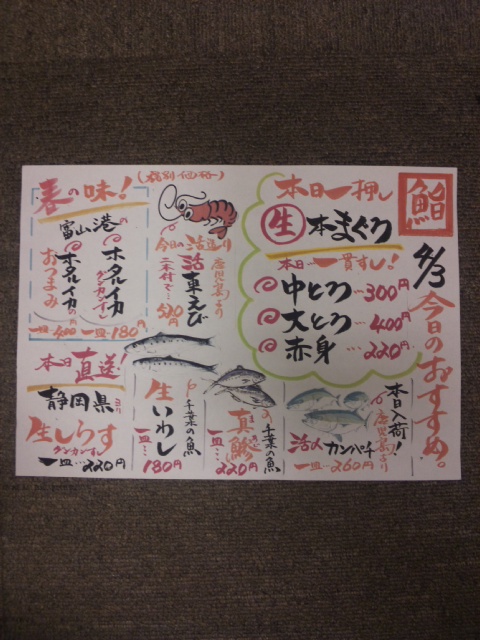 鮨
4/3
今日のおすすめ。
本日一押し
生本まぐろ
本日一貫すし!
中とろ…300円
大とろ…400円
赤身…220円
本日入荷!
鹿児島より
活〆カンパチ
一皿…260円
(特別価格)
今日の活造り
鹿児島より
活車えび
二本付で…
520円
千葉の魚
真鯵
一皿…
220円
千葉の魚
生いわし
一皿…
180円
春の味!
富山港の
ホタルイカ
グンカンすし
一皿…180円
ホタルイカの
おつまみ
一皿…400円
本日直送!
静岡県より
生しらす
グンカンすし
一皿…220円